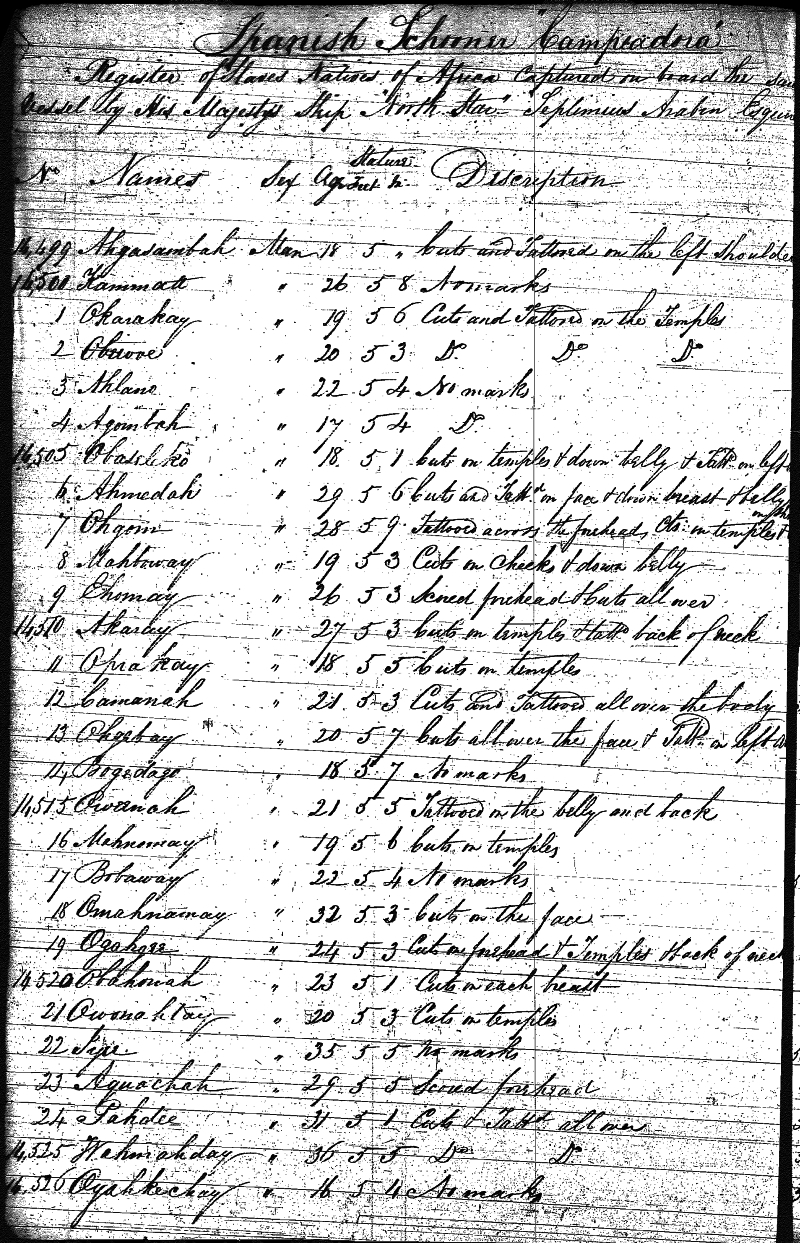 Spanish Schooner "Campeadora"
Register of Slaves Natives of Africa Captured on board the said
Vessel by His Majestys Ship "North Star" Septimius Arabin Esquire
No Names Sex Age Stature Feet In Description
14,499 Ahgasambah Man 18 5 „ Cuts and Tattooed on the left shoulder
14,500 Kammatt " 26 5 8 No marks
1 Okarakay " 19 5 6 Cuts and Tattooed on the Temples
2 Obuove " 20 5 3 Do Do Do
3 Ahlano " 22 5 4 No marks
4 Agombah " 17 5 4 Do
14,505 " 18 5 1 Cuts on temples & down belly & Tattd on left
6 Ahmedah " 29 5 6 Cuts and Tattd on face & down breast & belly
7 Ohgom " 28 5 9 Tattooed across the forehead, Cts on temples &
8 Mahboway " 19 5 3 Cuts on cheeks & down belly
9 Ehomay " 26 5 3 Scored forehead & Cuts all over
14,510 Akaray " 27 5 3 Cuts on temples & tattd back of neck
11 Oprakay " 18 5 5 Cuts on temples
12 Camanah " 21 5 3 Cuts and Tattooed all over the body
13 Ohgebay " 20 5 7 Cuts all over the face & Tattd on left
14 Bogedago " 18 5 7 No marks
14,515 Owanah " 21 5 5 Tattooed on the belly and back
16 Mahnomay " 19 5 6 Cuts on temples
17 Bobaway " 22 5 4 No marks
18 Omahnamay " 32 5 3 Cuts on the face
19 Ogahgee " 24 5 3 Cuts on forehead & Temples & back of neck
14,520 Obahonah " 23 5 1 Cuts on each breast
21 Owonahtay " 20 5 3 Cuts on temples
22 " 35 5 5 No marks
23 Aquachah " 29 5 5 Scored forehead
24 Pahdee " 31 5 1 Cuts & Tattd all over
14,525 Wahmahday " 36 5 5 Do Do
14,526 Oyahkechay " 16 5 4 No marks